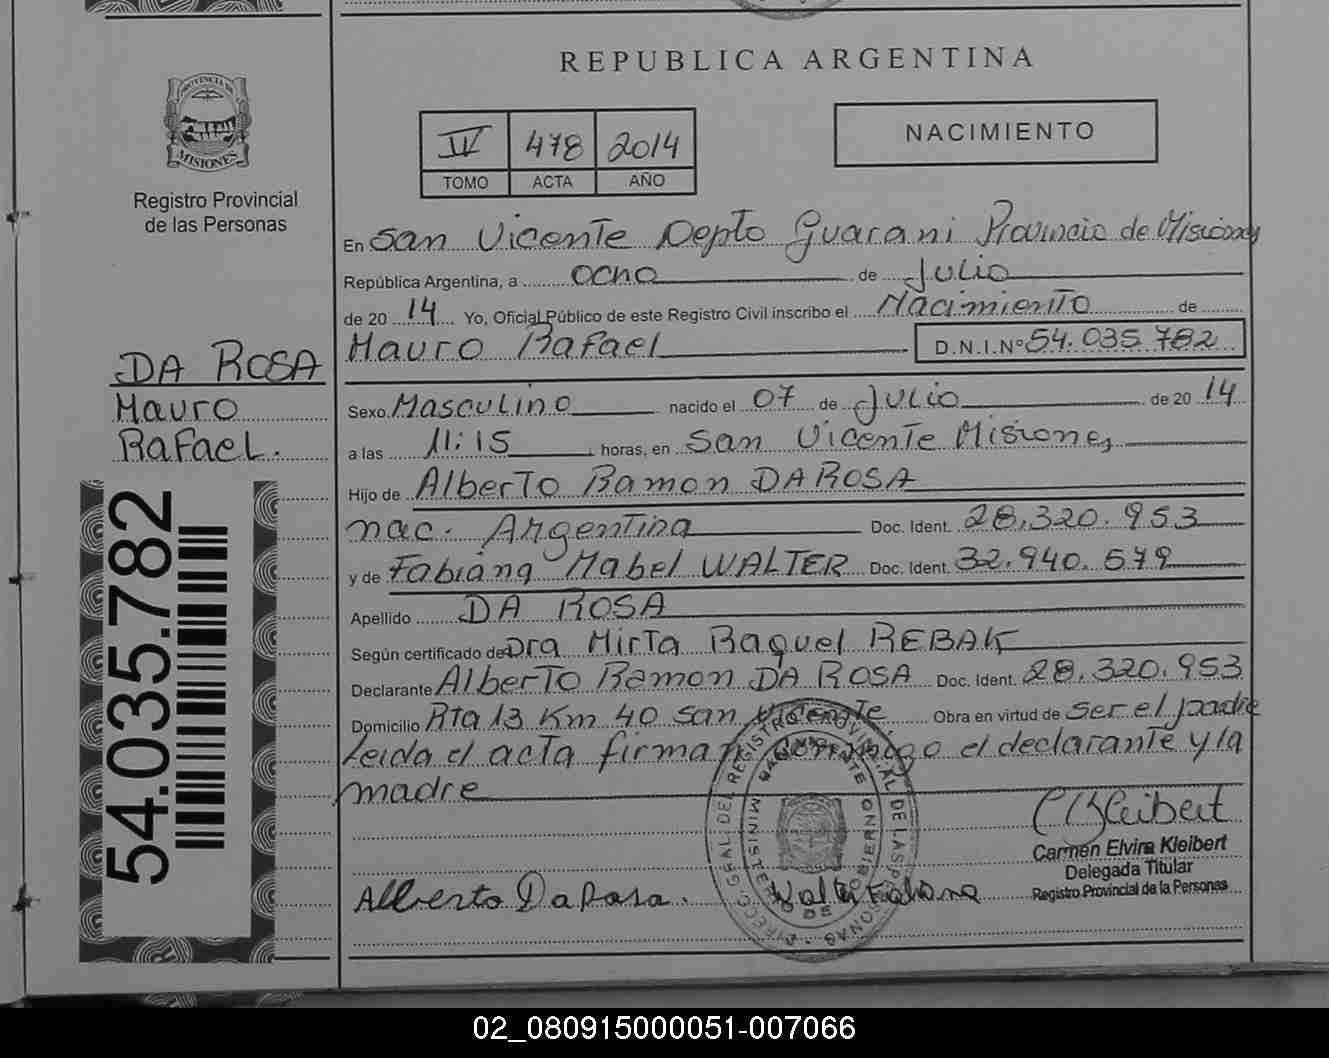 REPUBLICA ARGENTINA
PROVINCIA DE MISIONES
Registro Provincial
de las Personas
NACIMIENTO
IV 478 2014
TOMO ACTA AÑO
En San Vicente Depto Guarani Provincia de Misiones
República Argentina, a ocho de Julio
de 2014 Yo, Oficial Público de este Registro Civil inscribo el Nacimiento de
Mauro Rafael D.N.I.Nº 54.035.782
DA ROSA
Mauro
Rafael.
Sexo Masculino nacido el 07 de Julio de 2014
a las 11:15 horas, en San Vicente Misiones
Hijo de Alberto Ramon DA ROSA
nac. Argentina Doc. Ident. 28.320.953
y de Fabiana Mabel WALTER Doc. Ident. 32.940.579
Apellido DA ROSA
Según certificado de Dra Mirta Raquel REBAK
Declarante Alberto Ramon DA ROSA Doc. Ident. 28.320.953
Domicilio Rta 13 Km 40 San Vicente, Obra en virtud de ser el padre
Leida el acta firman conmigo el declarante y la
madre
54.035.782
C Kleibert
Carmen Elvira Kleibert
Delegada Titular
Registro Provincial de la Personas
Alberto Da Rosa. Walter Fabiana
DIRECC. GRAL. DEL REGISTRO PROVINCIAL DE LAS PERSONAS
MINISTERIO DE GOBIERNO
02_080915000051-007066